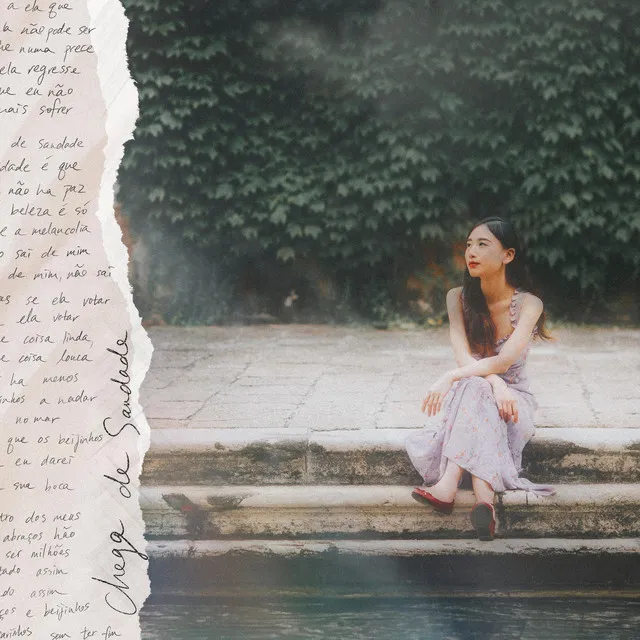 a ela que
não pode ser
numa prece
ela regresse
eu não
mais sofrer
de Saudade
dade é que
não ha paz
beleza é só
é a melancolia
sai de mim
de mim, não sai
as se ela votar
ela votar
coisa linda,
coisa louca
ha menos
inhos a nadar
no mar
que os beijinhos
eu darei
sua boca
tro dos meus
abraços hão
ser milhões
tado assim
do assim
ços e beijinhos
carinhos sem ter fim
Chega de Saudade